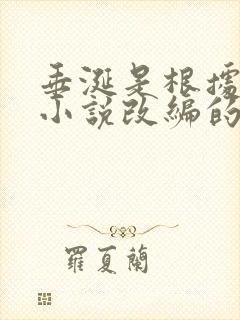 垂涎是根據
小説改編的
羅夏蘭